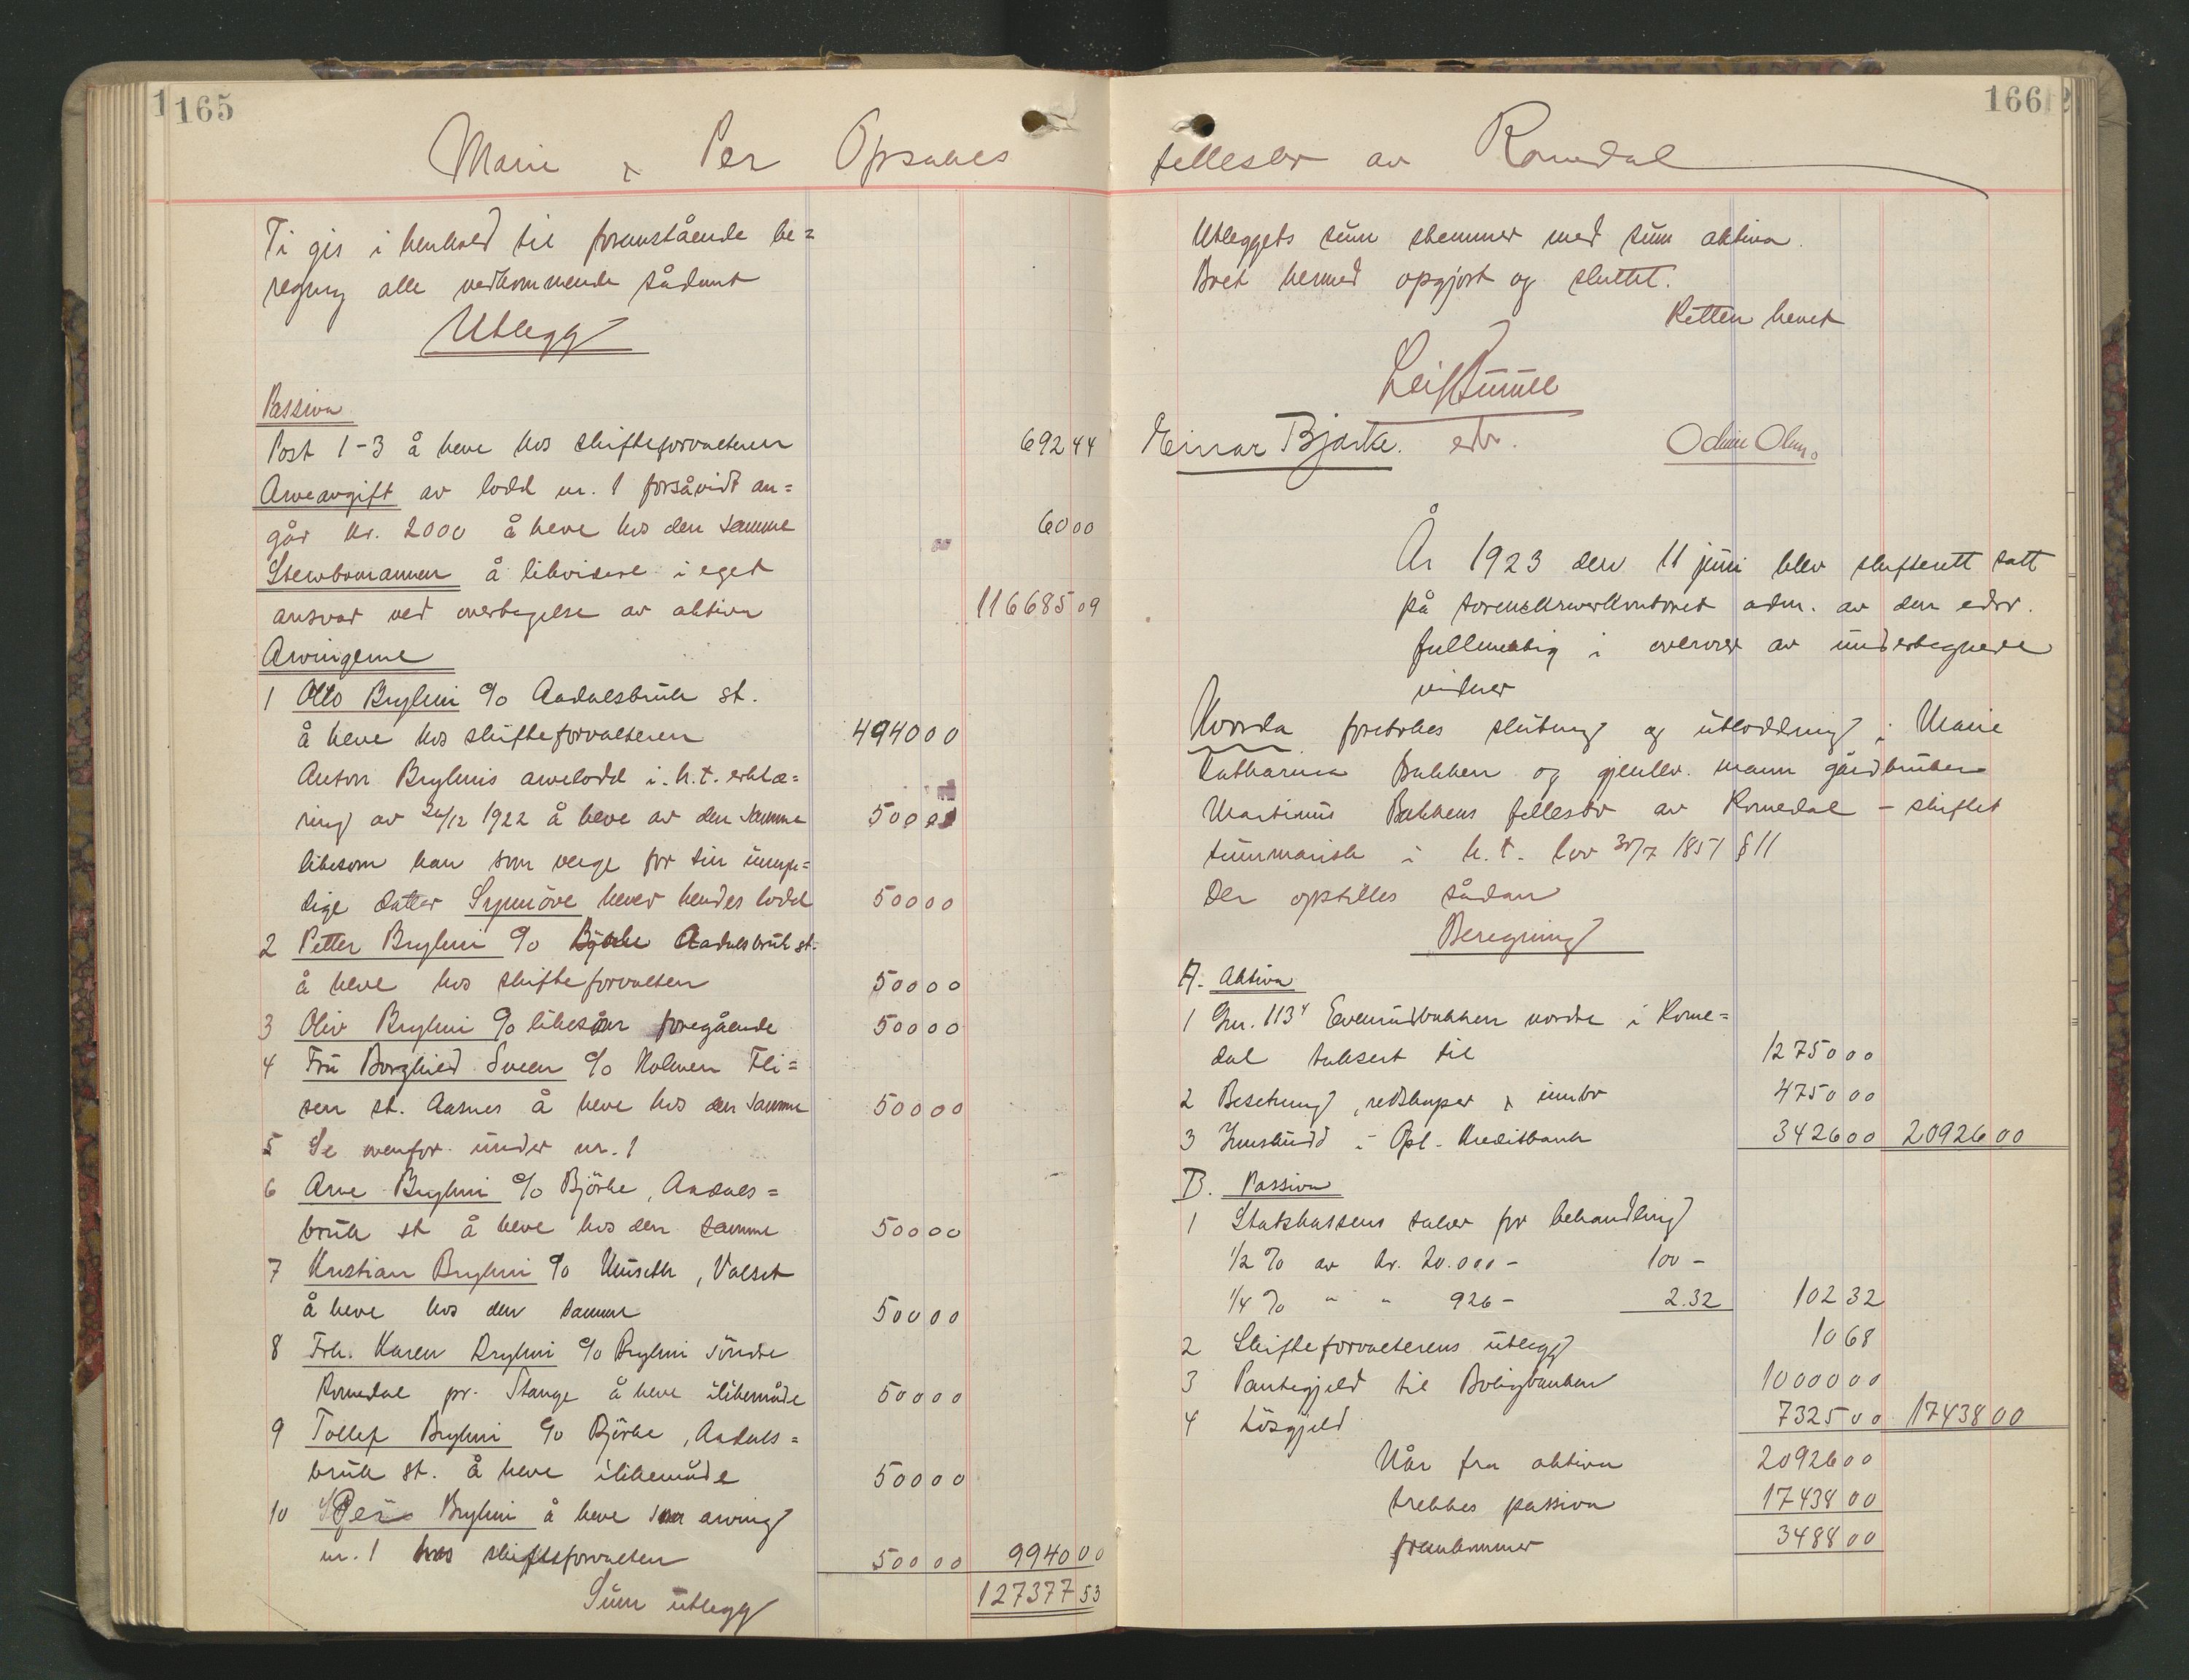 165
Marie & Per Opsahls
Ti gis i henhold til foranstående be=
regning alle vedkommende sådant
Utlegg
Passiva
Post 1-3 å heve hos skifteforvalteren 692 44
Arveavgift av lodd nr. 1 forsåvidt an=
går kr. 2000 å heve hos den samme 60 00
Sterbomannen å likvidere i eget
ansvar ved overtagelse av aktiva 116685 09
Arvingerne
1 Otto Bryhni c/o Aadalsbruk st.
å heve hos skifteforvalteren 4940 00
Anton Bryhnis arvelodd i h.t. erklæ=
ring av 26/12 1922 å heve av den samme 500 00
likesom han som verge for sin umyn=
dige datter Synnöve hever hendes lodd 500 00
2 Petter Bryhni c/o Björke Aadalsbruk st.
å heve hos skifteforvalteren 500 00
3 Oliv Bryhni c/o likesom foregående 500 00
4 Fru Borghild Sveen c/o Holmen Fli=
sen st. Aasnes å heve hos den samme 500 00
5 Se ovenfor under nr. 1
6 Arne Bryhni c/o Björke, Aadals=
bruk st å heve hos den samme 500 00
7 Kristian Bryhni c/o Uluseth, Valset
å heve hos den samme 500 00
8 Frk. Karen Bryhni c/o Bryhni söndre
Romedal pr. Stange å heve ilikemåde 500 00
9 Tollef Bryhni c/o Björke, Aadals=
bruk st. å heve ilikemåde 500 00
10 Per Bryhni å heve som arving
nr. 1 hos skifteforvalteren 500 00 9940 00
Sum utlegg 127377 53
166
fellesbo av Romedal
Utleggets sum stemmer med sum aktiva.
Boet hermed opgjort og sluttet.
Retten hevet
Leif
edv.
Einar Bjarke. Odin Olsen.
År 1923 den 11 juni blev skifterett satt
på sorenskriverkontoret adm. av den edsv.
fullmektig i overvær av undertegnede
vidner
Hvorda foretokes slutning og utlodning i Marie
Katharina Bakken og gjenlev. mann gårdbruker
Martinus Bakkens fellesbo av Romedal - skiftet
summarisk i h.t. lov 30/7 1851 § 11
Der opstilles sådan
Beregning
A. Aktiva
1 Gnr. 113 4 Evenrudbakken nordre i Rome=
dal taksert til 12750 00
2 Besetning, redskaper & innbo 4750 00
3 Innskudd i Opl. Kreditbank 3426 00 20926 00
B. Passiva
1 Statskassens saler for behandling
1/2 % av kr. 20.000 - 100 -
1/4 % " " 926 - 2.32 102 32
2 Skifteforvalterens utlegg 10 68
3 Pantegjeld til Boligbanken 10000 00
4 Lösgjeld 7325 00 17438 00
Når fra aktiva 20926 00
trekkes passiva 17438 00
fremkommer 3488 00